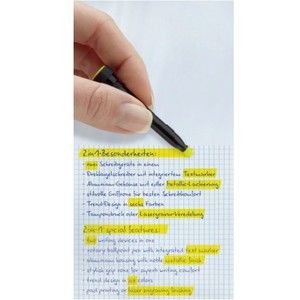 2in1-Besonderheiten:
- zwei Schreibgeräte in einem
- Drehkugelschreiber mit integriertem Textmarker
- Aluminium-Gehäuse mit edler Metallic-Lackierung
- stilvolle Griffzone für besten Schreibkomfort
- Trend-Design in sechs Farben
- Tampondruck oder Lasergravur-Veredelung
2-in-1 special features:
- two writing devices in one
- rotary ballpoint pen with integrated text marker
- aluminium housing with noble metallic finish
- stylish grip zone for superb writing comfort
- trend design in six colors
- pad printing or laser engraving finishing